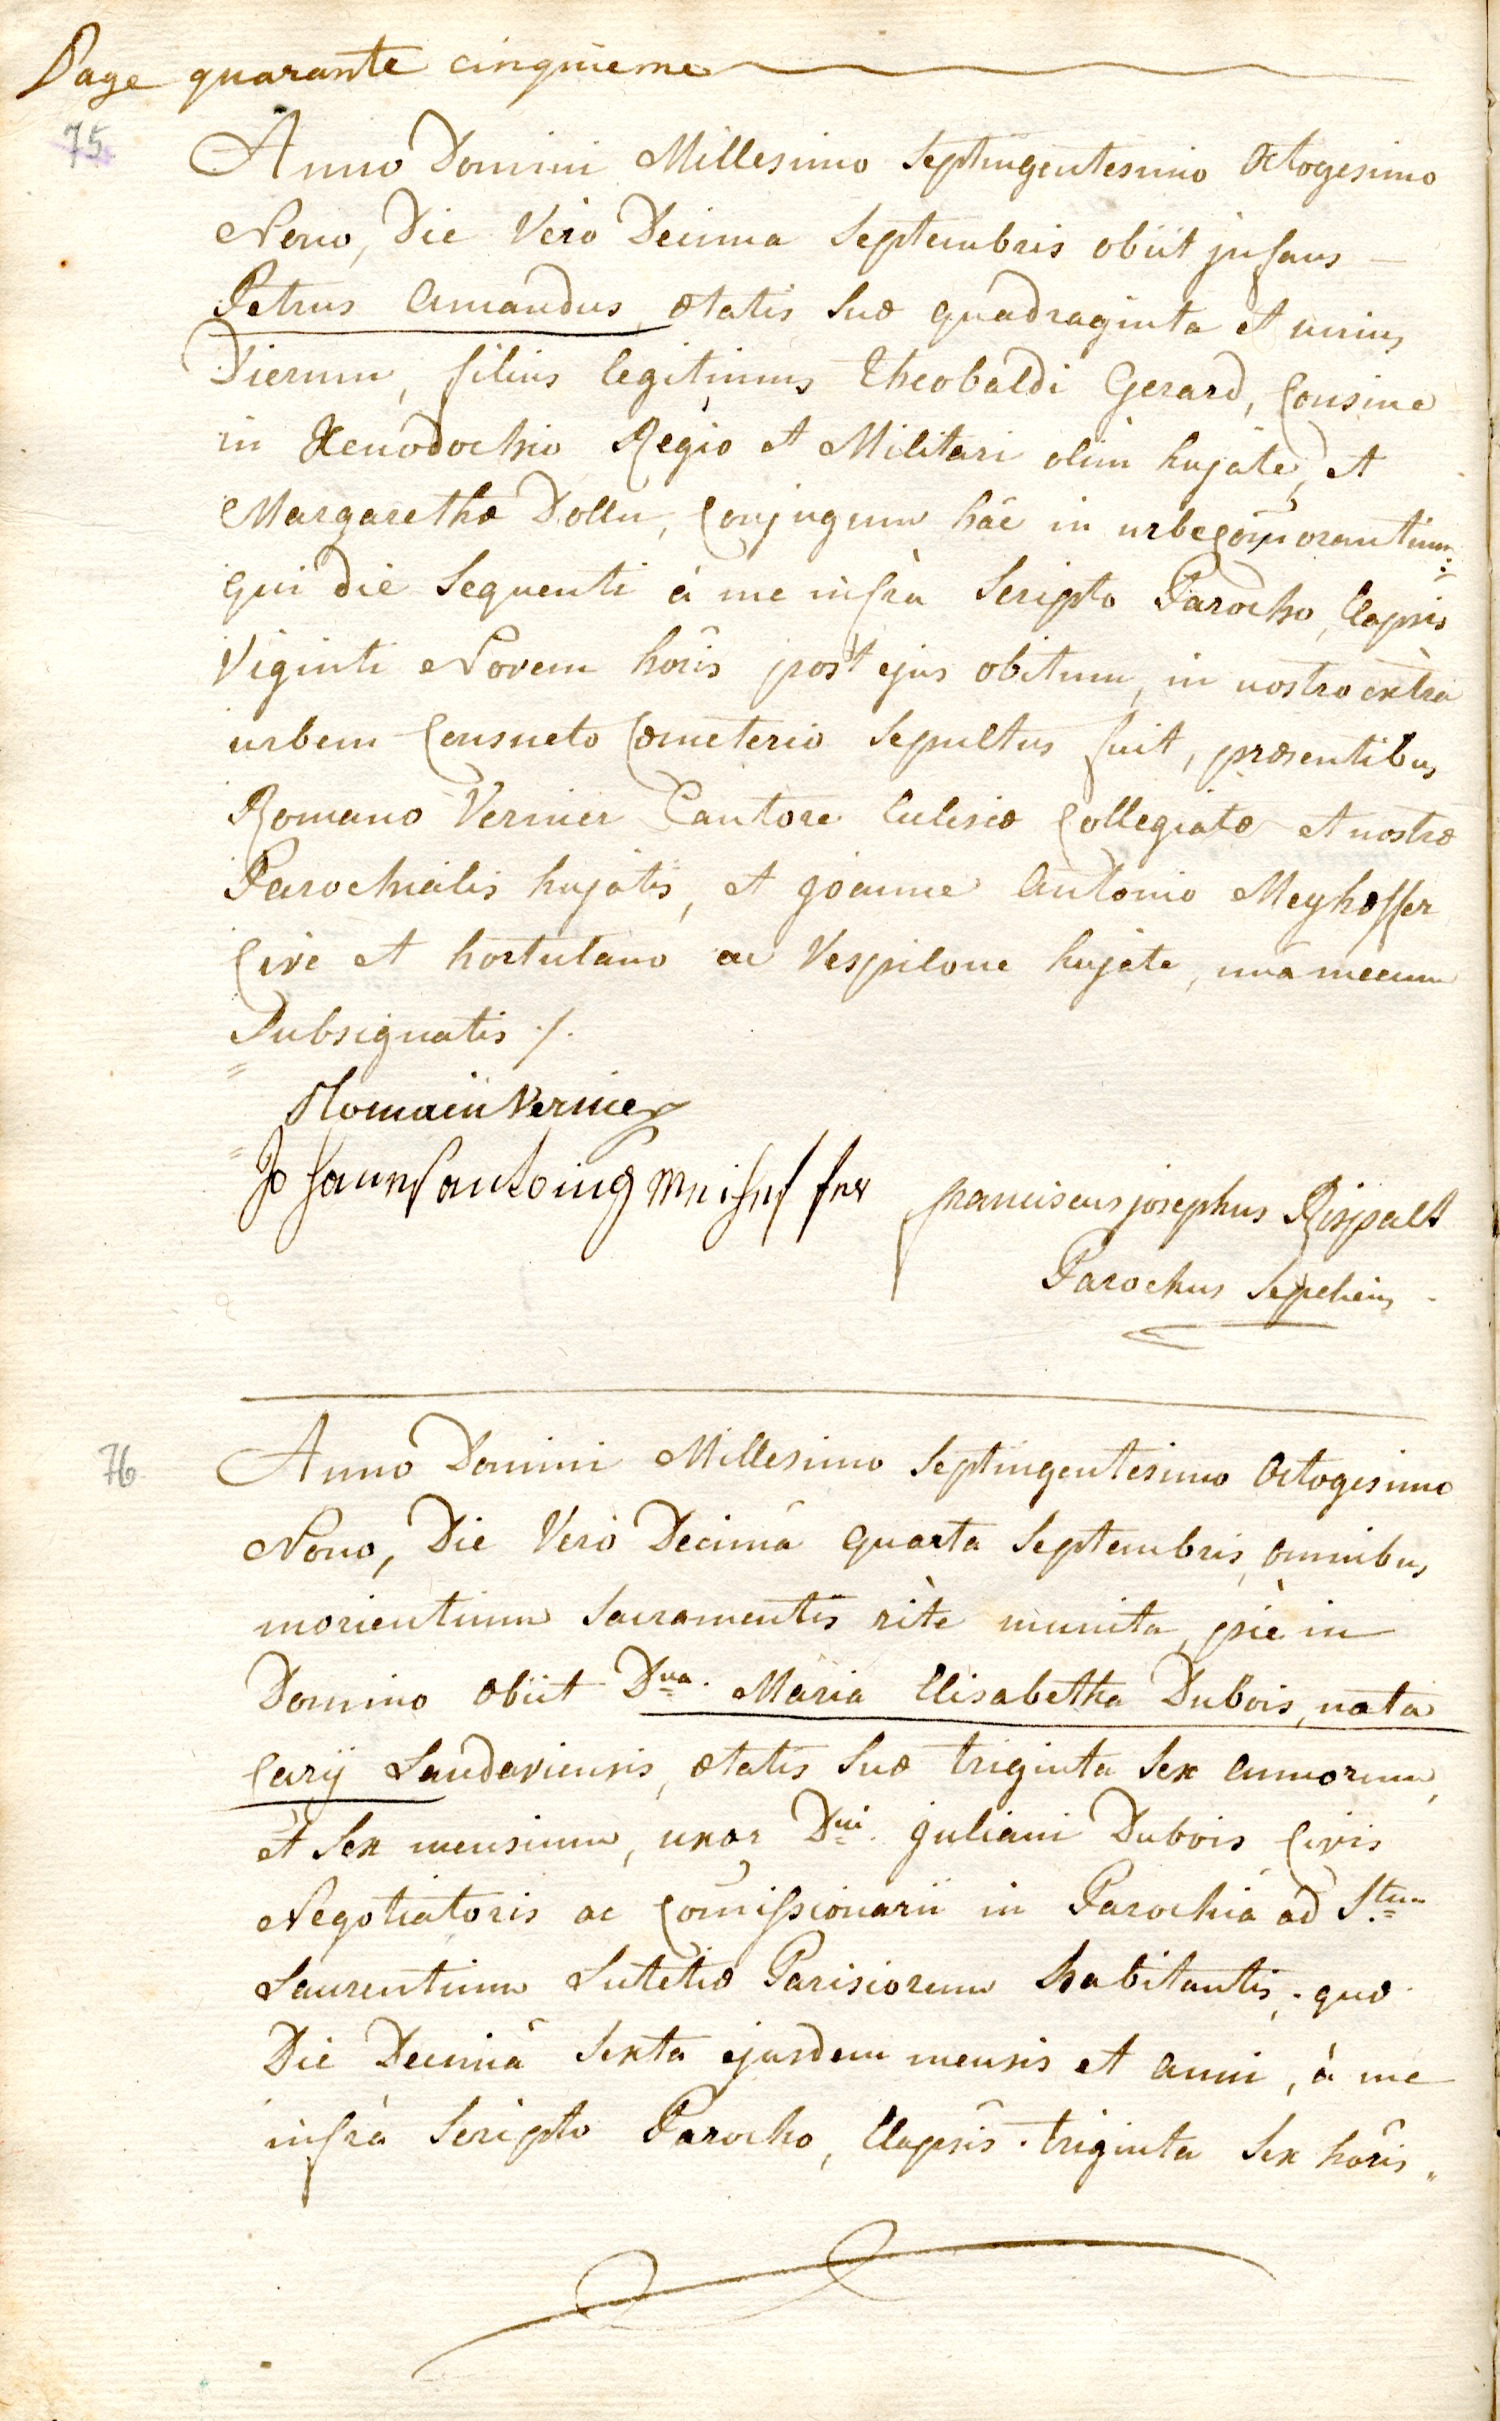 Page quarante cinquieme
75
Anno Domini Millesimo Septingentesimo Octogesimo
Nono, Die Verò Decima Septembris obiit jnfans
Petrus Amandus, ætatis Suæ quadraginta et unius
Dierum, filius legitimus Theobaldi Gerard,
in Xenodochio Regio et Militari olim hujate, et
Margarethæ Dollu, Conjugum hâc in urbe Com̄orantium:
qui die Sequenti à me infrà Scripto Parocho, Elapsis
Viginti Novem horîs post ejus obitum, in nostro extrà
urbem Consueto Cœmeterio Sepultus fuit, præsentibus
Romano Vernier Cantore Ecclesiæ Collegiatæ et nostræ
Parochialis hujatis, et joanne Antonio Meyhoffer
Cive et hortulano ac Vespilone hujate, unà mecum
Subsignatis ./.
Romain Vernier
franciscus josephus Rispalt
Parochus Sepeliens
76
Anno Domini Millesimo Septingentesimo Octogesimo
Nono, Die Verò Decimâ quarta Septembris, omnibus
morientium Sacramentis ritè munita, piè in
Domino obiit Dna. Maria Elisabetha Dubois, nata
Cary Landaviensis, ætatis Suæ triginta Sex annorum,
et Sex mensium, uxor Dni. juliani Dubois Civis
Negotiatoris ac Com̄issionarii in Parochiâ ad Stum
Laurentium Lutetiæ Parisiorum habitantis; quæ
Die Decimâ Sexta ejusdem mensis et anni, à me
infrà Scripto Parocho, Elapsîs triginta Sex horîs